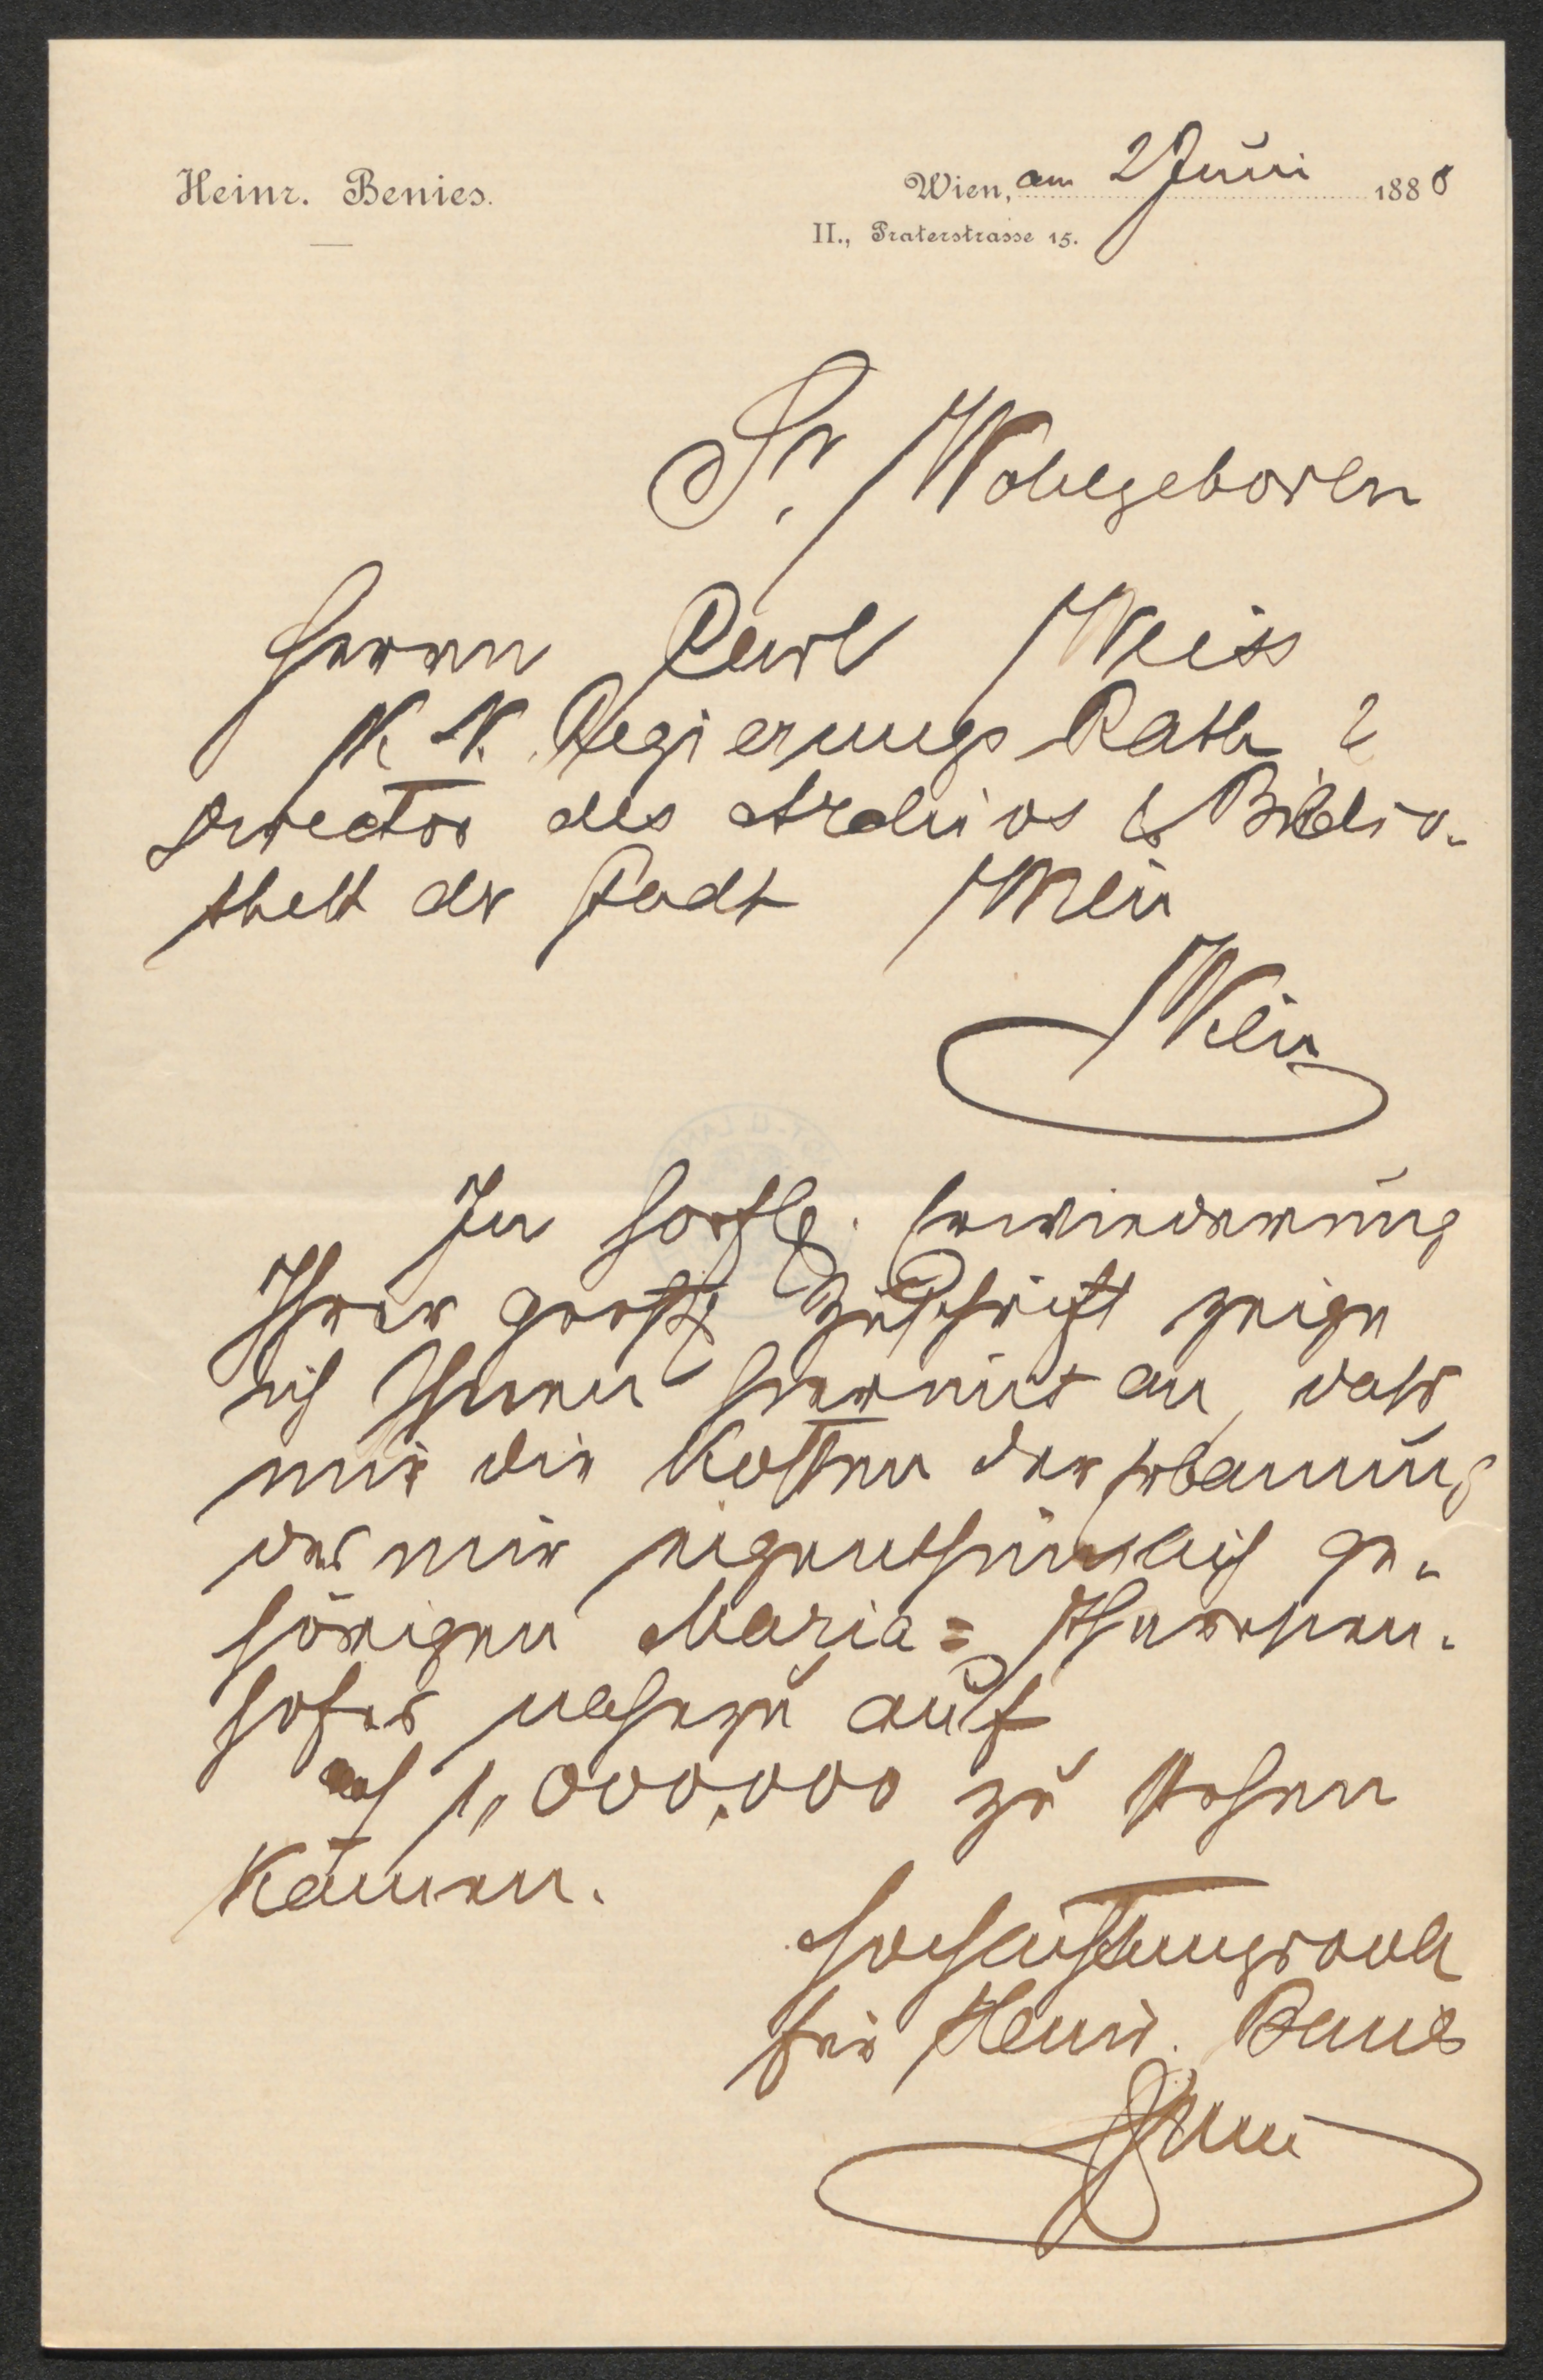 Heinr. Benies.
Wien, am 2 Juni 1888
II., Praterstrasse 15.
Sr. Wohlgeboren
Herrn Carl Weiss
K. K. Regierungs Rath &
Director des Archivs & Biblio-
thek der Stadt Wien
Wien
In höfl. Erwiederung
Ihrer geehrten Zuschrift zeige
ich Ihnen hiermit an, daß
mir die Kosten der Erbauung
des mir eigenthümlich ge-
hörigen Maria=Theresien-
hofes nahezu auf
1,000.000 zu stehen
kamen.
Hochachtungsvoll
für Heinr. Benies